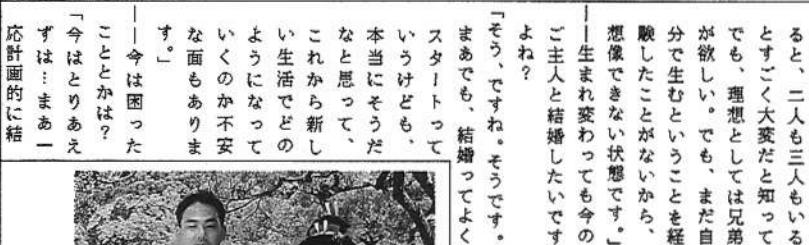 ると、二人も三人もいる
とすごく大変だと知って
でも、理想としては兄弟
が欲しい。でも、まだ自
分で生むということを経
験したことがないから、
想像できない状態です。」
――生まれ変わっても今の
ご主人と結婚したいです
よね？
「そう、ですね。そうです。
まあでも、結婚ってよく
スタートって
いうけども、
本当にそうだ
なと思って、
これから新し
い生活でどの
ようになって
いくのか不安
な面もありま
す。」
――今は困った
こととかは？
「今はとりあえ
ずは…まあ一
応計画的に結